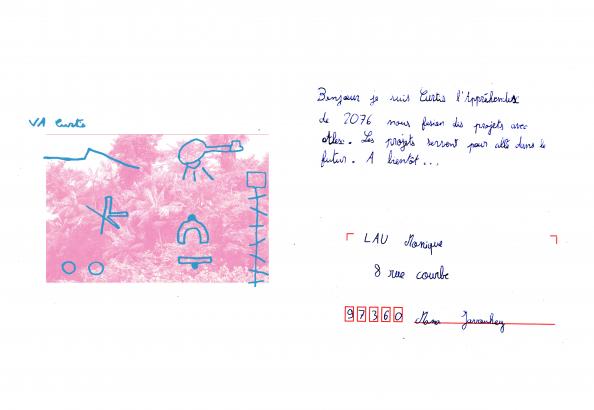 VA Curtis
Bonjour je suis Curtis l'Appréhendex
de 2076 nous fusion des projets avec
Alex. Les projets serront pour allé dans le
futur. A bientot...
LAU Monique
8 rue courbe
97360 Mana Javouhey